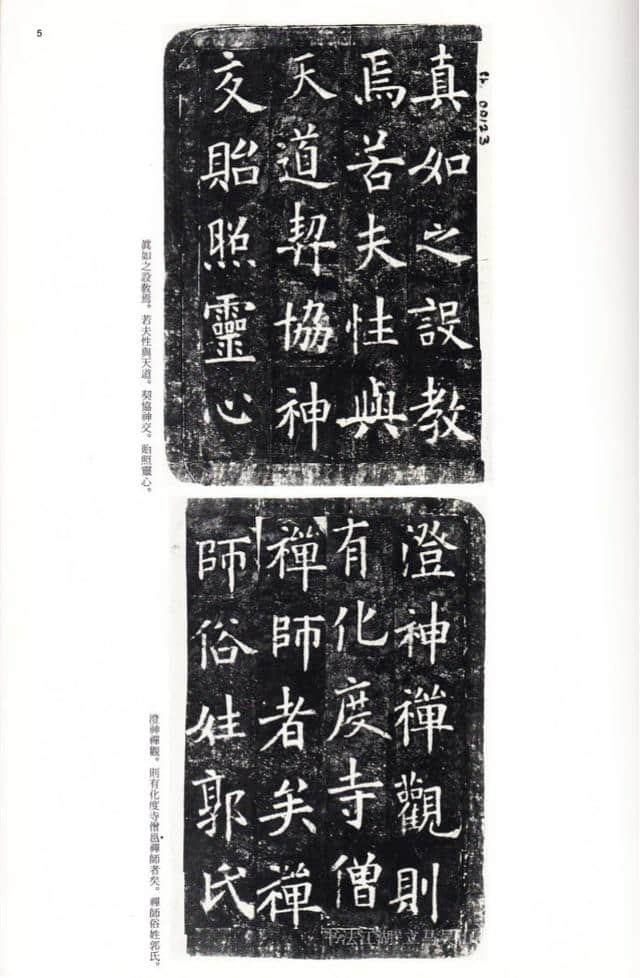 5
00123
真如之設教
焉若夫性與
天道契協神
交貽照靈心
眞如之設教焉。若夫性與天道。契協神交。貽照靈心。
澄神禪觀則
有化度寺僧
禪師者矣禪
師俗姓郭氏
澄神禪觀。則有化度寺僧邕禪師者矣。禪師俗姓郭氏。
书法江湖